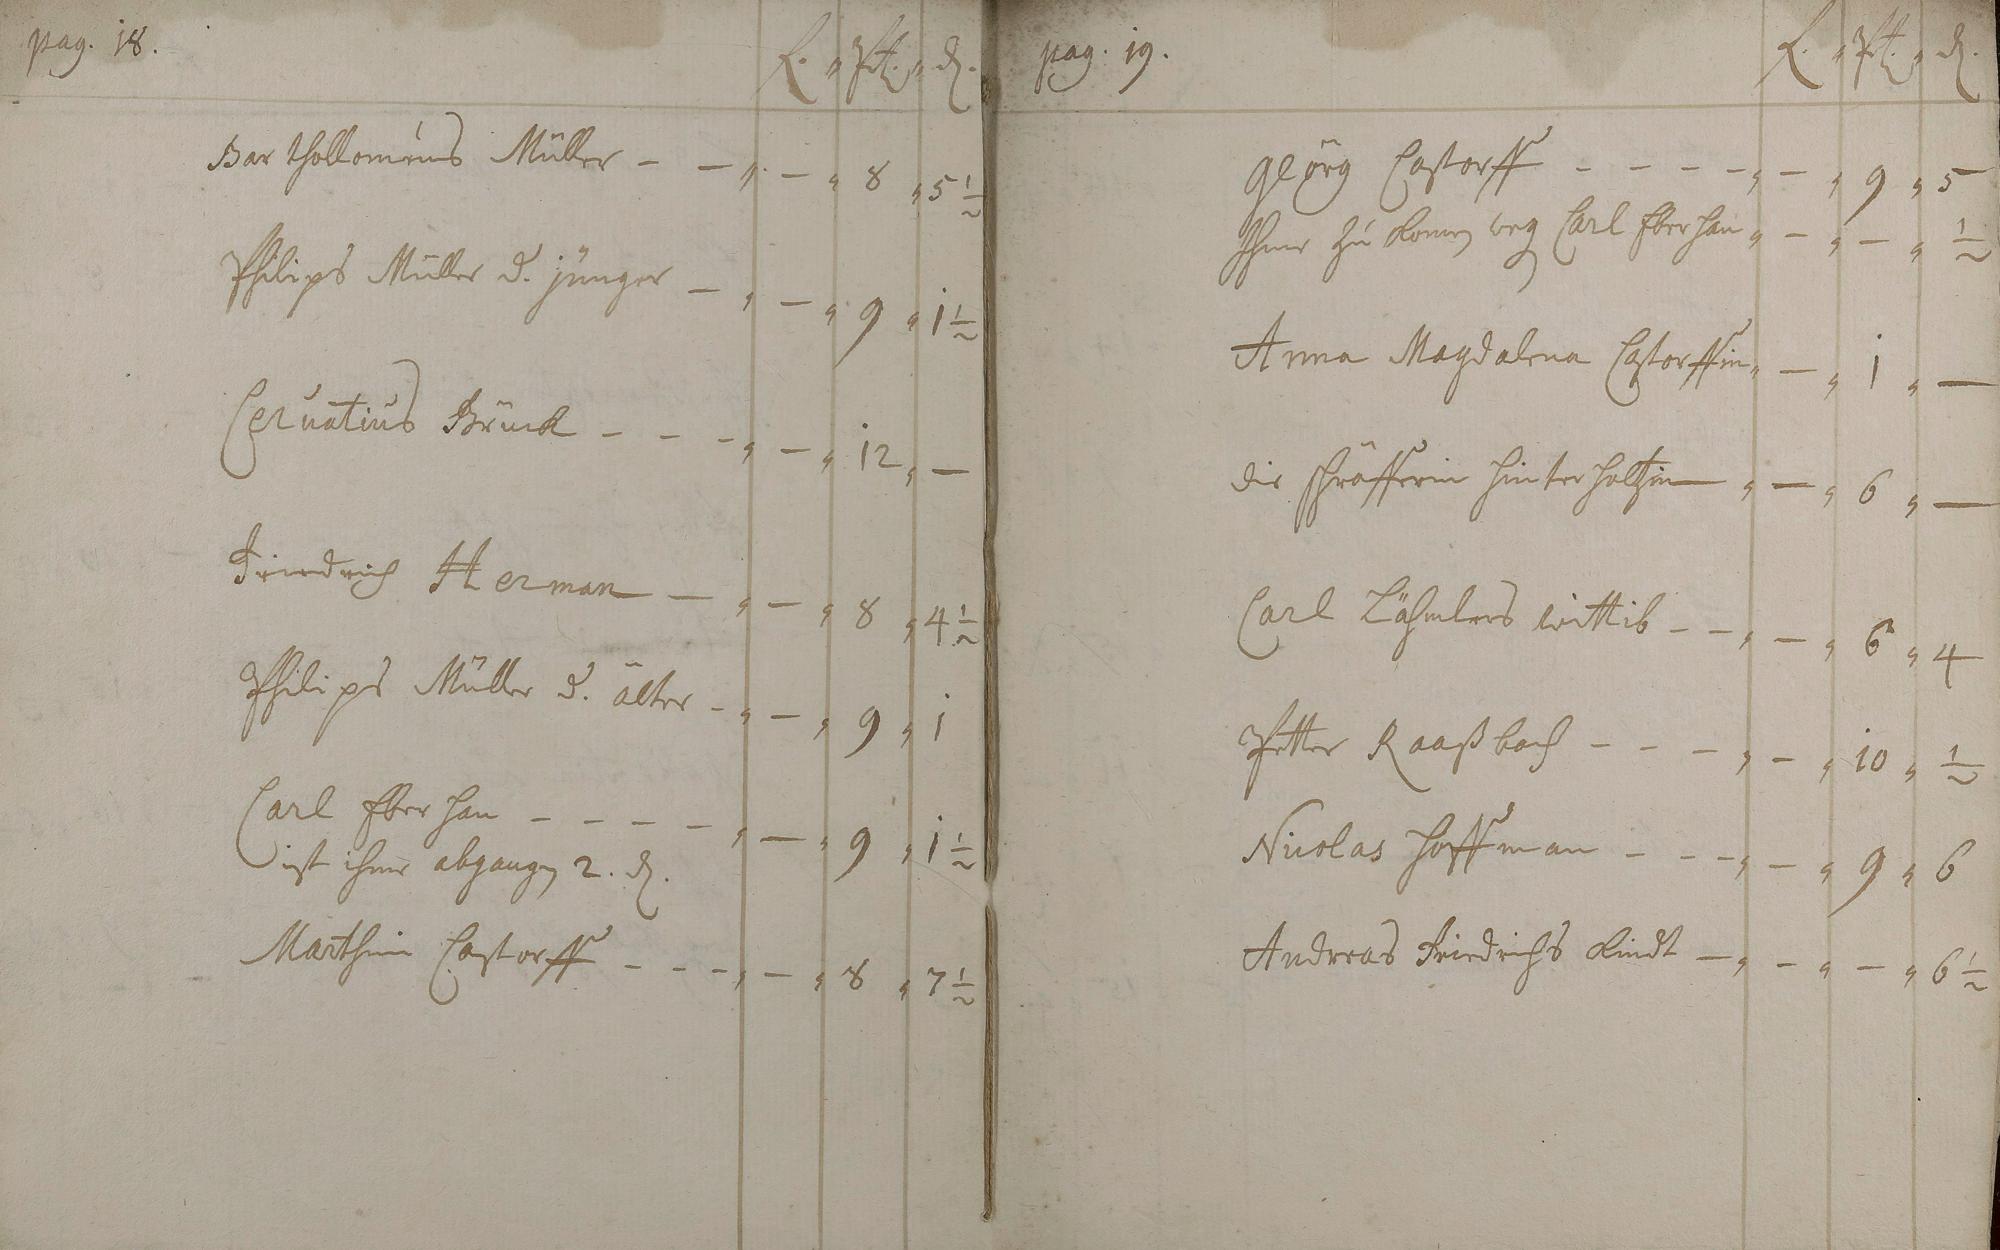 pag. 18. fl. Alb. d.
Bartholloméus Müller - - " - " 8 " 5 ½
Philips Müller d. jünger - " - " 9 " 1 ½
Cervatius Brück - - - " - " 12 " -
Friedrich Herman - " - " 8 " 4 ½
Philips Müller d. älter - " - " 9 " 1
Carl Eberhan - - - - " - " 9 " 1 ½
ist ihme abgangen 2. d.
Marthin Castorff - - - " - " 8 " 7 ½
pag. 19. fl. Alb. d.
Geörg Castorff - - - - " - " 9 " 5
Ihme zu komen weg Carl Eberhan " - " - " ½
Anna Magdalena Castorffin " - " 1 " -
die hinterholtzin " - " 6 " -
Carl wittib - - " - " 6 " 4
Petter Raaßbach - - - " - " 10 " ½
Nicolas Hoffman - - - " - " 9 " 6
Andreas Friedrichs Kindt - " - " - " 6 ½